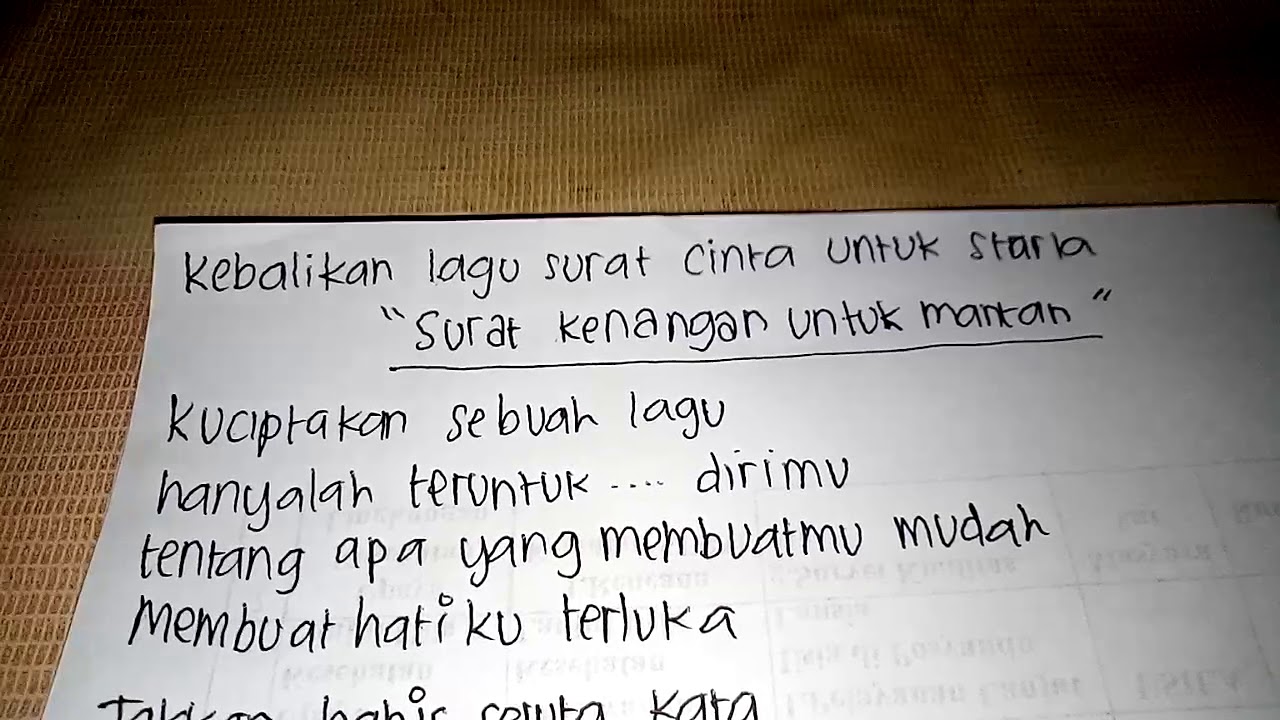 Kebalikan lagu surat cinta untuk starla
"Surat kenangan untuk mantan"
Kuciptakan sebuah lagu
hanyalah teruntuk .... dirimu
tentang apa yang membuatmu mudah
membuat hatiku terluka
Takkan habis sejuta kata